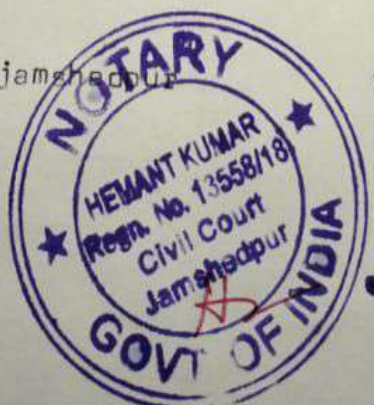 jamshedpur
NOTARY
HEMANT KUMAR
Regn. No. 13558/18
Civil Court
Jamshedpur
GOVT OF INDIA